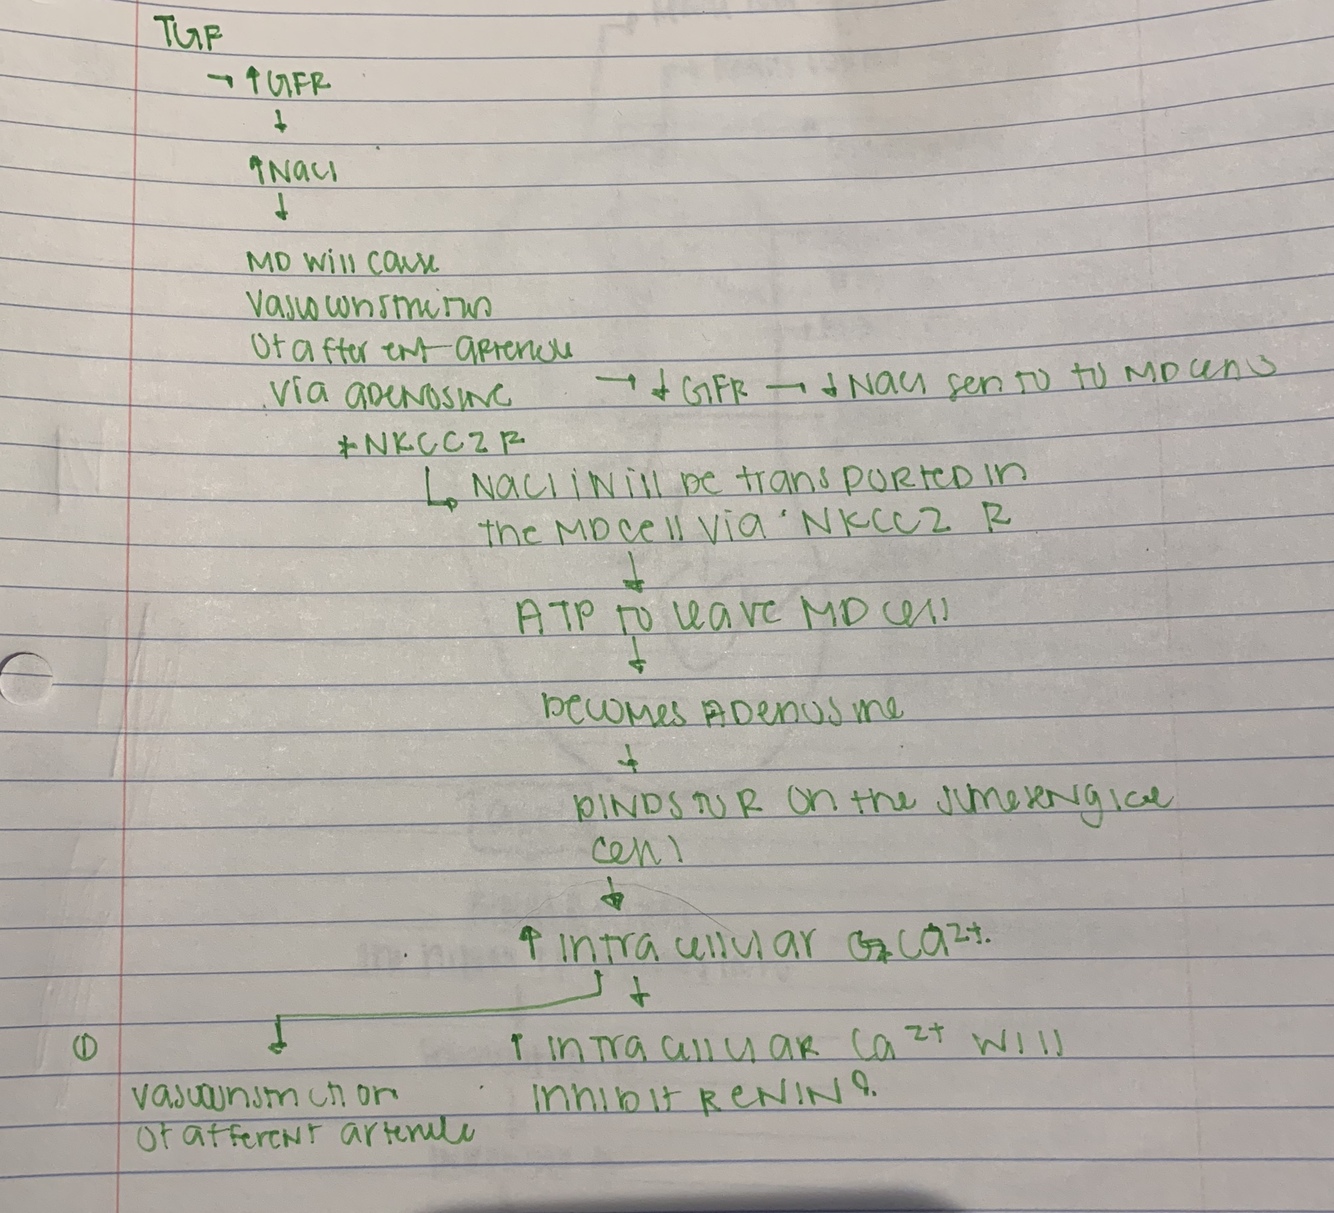 TGF
→ ↑GFR
↓
↑NaCl
↓
MD will cause
vasoconstriction
of afferent arteriole
via adenosine → ↓ GFR → ↓ NaCl sent to to MD cells
*NKCC2 R
↳ NaCl will be transported in
the MD cell via NKCC2 R
↓
ATP to leave MD cell
↓
becomes Adenosine
↓
binds to R on the
cell
↓
↑ intracellular Ca²⁺.
↓
① ↑ intracellular Ca²⁺ will
vasoconstriction inhibit RENIN?
of afferent arteriole